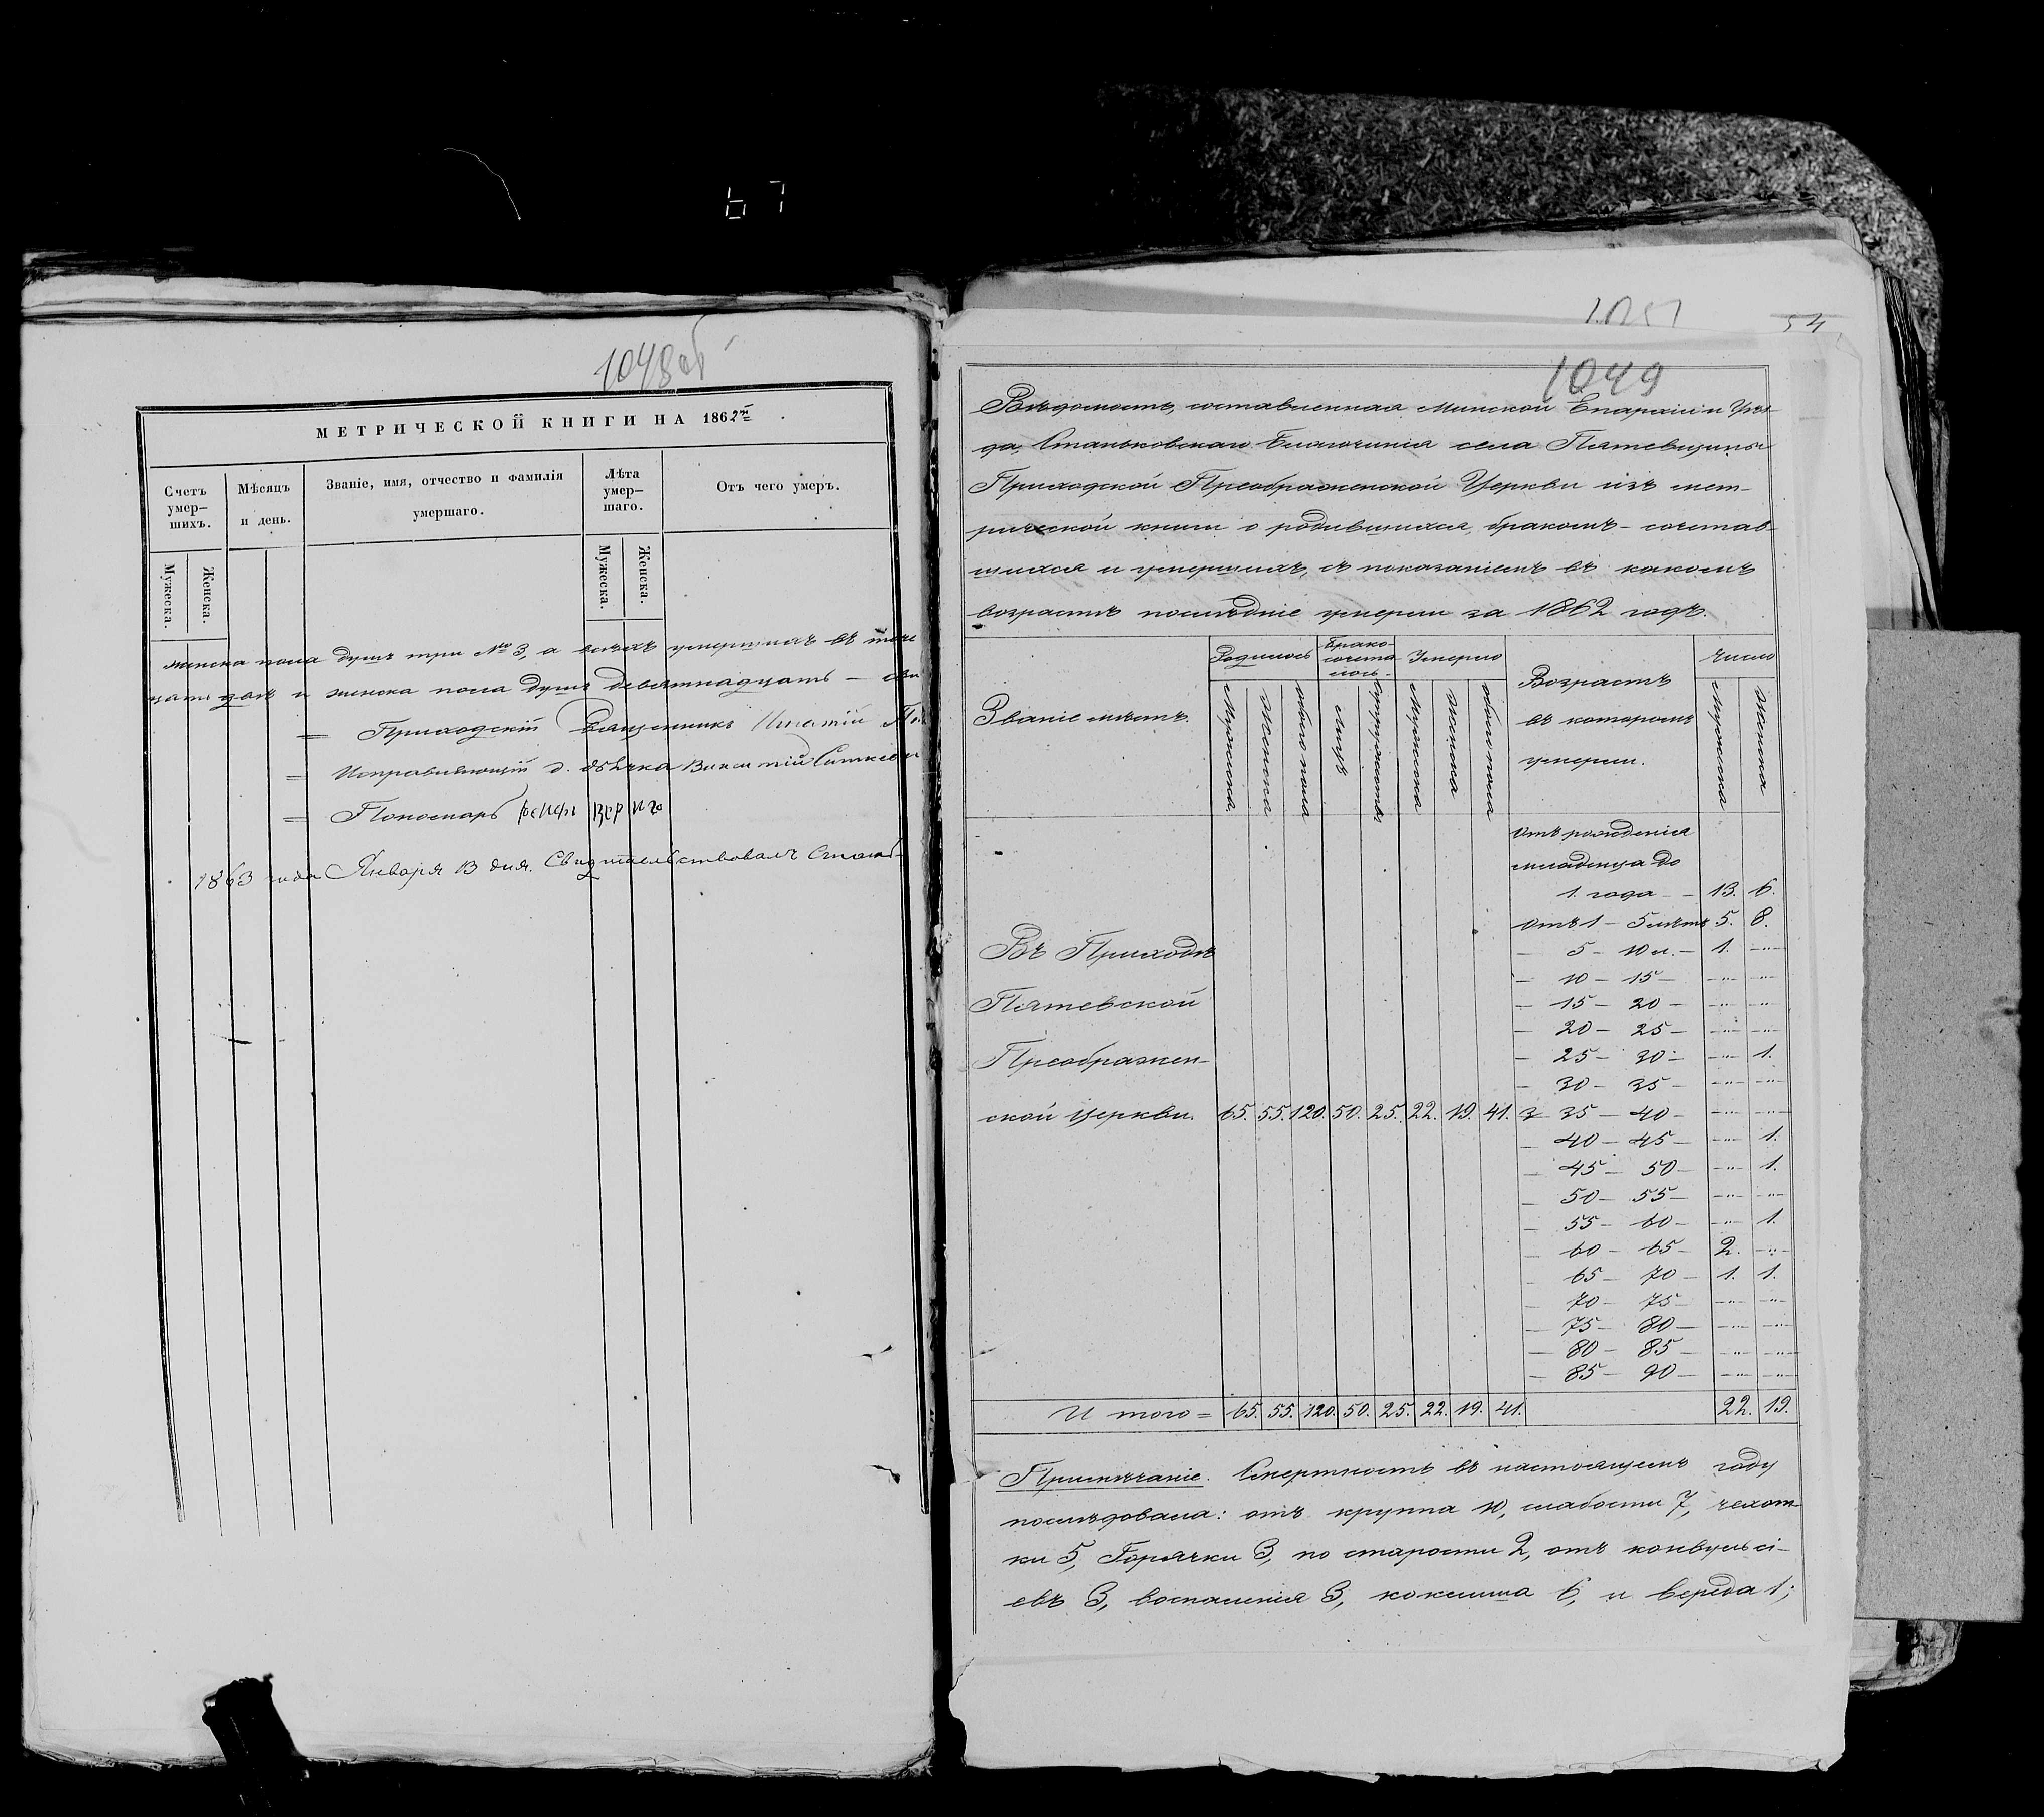 67
1048 об
МЕТРИЧЕСКОЙ КНИГИ НА 1862
Счетъ умер-шихъ.
Мѣсяцъ и день.
Званіе, имя, отчество и фамилія умершаго.
Лѣта умер-шаго.
Отъ чего умеръ.
Мужеска.
Женска.
Мужеска.
Женска.
женска пола душъ три № 3, а всѣхъ умершихъ въ
и женска пола душъ девятнадцать —
= Приходскій Священникъ
= Исправляющій д. дьячка Викентій
= Пономарь
1863 года Января 13 дня. Свидѣтельствовалъ
1051
54
1049
Вѣдомость, составленная Минской Епархіи и Уѣз-
да, Станьковскаго Благочинія села Пятевщины
Приходской Преображенской Церкви изъ мет-
рической книги о родившихся, бракомъ-сочетав-
шихся и умершихъ, съ показаніемъ въ какомъ
возрастѣ послѣдніе умерли за 1862 годъ.
Званіе мѣстъ.
Родилось
Брако-сочета-лось.
Умерло
Возрастъ въ которомъ умерли.
Число
Мужеска
Женска
обоего пола
Лицъ
Супружествъ
Мужеска
Женска
обоего пола
Мужеска
Женска
отъ рожденія
младенца до
1. года — 13. 6.
отъ 1 — 5 лѣтъ 5. 8.
— 5 — 10 л. — 1. —"—
— 10 — 15 — —"— —"—
— 15 — 20 — —"— —"—
— 20 — 25 — —"— —"—
— 25 — 30 — —"— 1.
— 30 — 35 — —"— —"—
Въ Приходѣ
Пятевской
Преображен-
ской Церкви. 65. 55. 120. 50. 25. 22. 19. 41.
— 35 — 40 — —"— —"—
— 40 — 45 — —"— 1.
— 45 — 50 — —"— 1.
— 50 — 55 — —"— —"—
— 55 — 60 — —"— 1.
— 60 — 65 — 2. —"—
— 65 — 70 — 1. 1.
— 70 — 75 — —"— —"—
— 75 — 80 — —"— —"—
— 80 — 85 — —"— —"—
— 85 — 90 — —"— —"—
И того = 65. 55. 120. 50. 25. 22. 19. 41. 22. 19.
Примѣчаніе. Смертность въ настоящемъ году
послѣдовала: отъ круппа 10, слабости 7, чахот-
ки 5, Горячки 3, по старости 2, отъ конвульсі-
евъ 3, воспаленія 3, коклюша 6, и вереда 1;